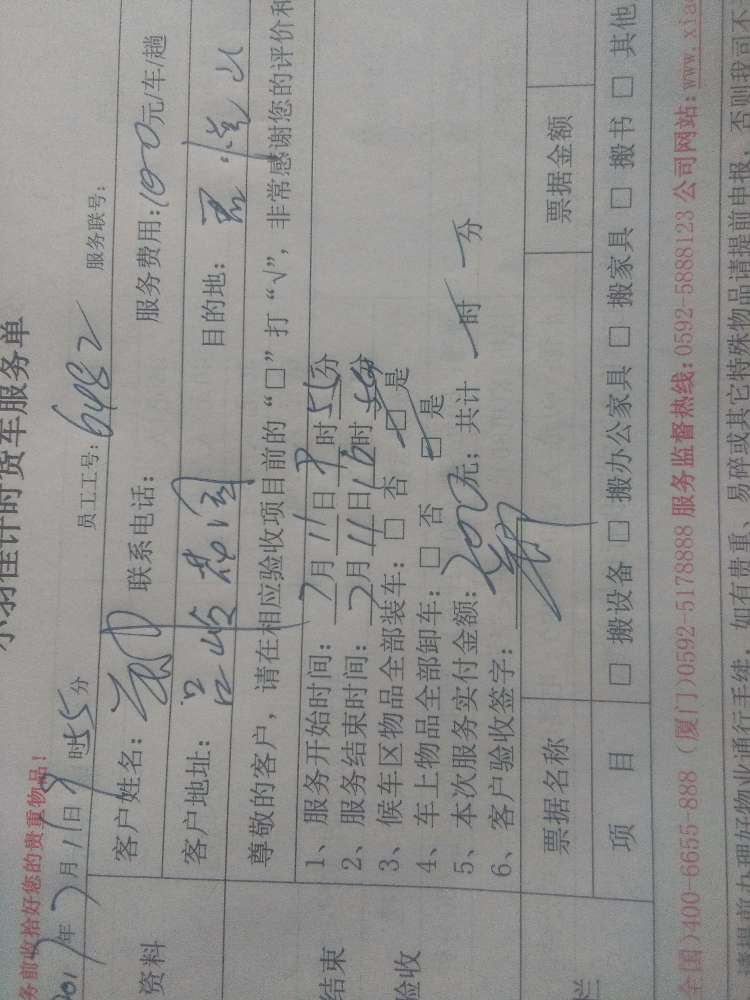 小羽佳计时货车服务单
务前收拾好您的贵重物品！
年7月11日9时55分 员工工号：6482 服务联号：
资料
客户姓名： 联系电话： 服务费用：100元/车/趟
客户地址： 目的地：
尊敬的客户，请在相应验收项目前的“□”打“√”，非常感谢您的评价和
结束
验收
1、服务开始时间：7月11日9时55分
2、服务结束时间：7月11日10时分
3、候车区物品全部装车：□ 否 □ 是
4、车上物品全部卸车：□ 否 □ 是
5、本次服务实付金额：200元；共计 一 时 一 分
6、客户验收签字：
票据名称 票据金额
栏
项 目 □ 搬设备 □ 搬办公家具 □ 搬家具 □ 搬书 □ 其他
全国)400-6655-888 (厦门)0592-5178888 服务监督热线:0592-5888123 公司网站:www.xiao
请提前办理好物业通行手续，如有贵重、易碎或其它特殊物品请提前申报，否则我司不